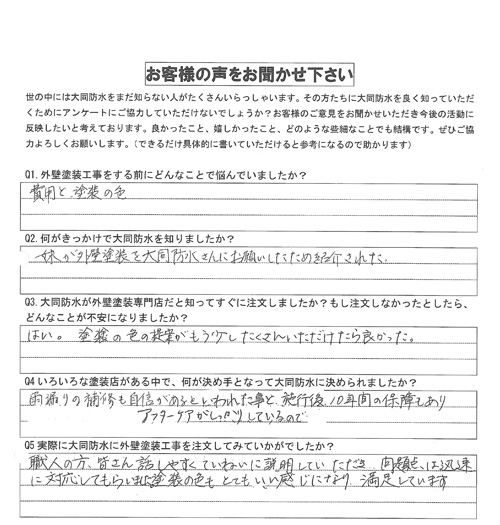 お客様の声をお聞かせ下さい
世の中には大同防水をまだ知らない人がたくさんいらっしゃいます。その方たちに大同防水を良く知っていただ
くためにアンケートにご協力していただけないでしょうか？お客様のご意見をお聞かせいただき今後の活動に
反映したいと考えております。良かったこと、嬉しかったこと、どのような些細なことでも結構です。ぜひご協
力よろしくお願いします。（できるだけ具体的に書いていただけると参考になるので助かります）
Q1. 外壁塗装工事をする前にどんなことで悩んでいましたか？
費用と、塗装の色
Q2. 何がきっかけで大同防水を知りましたか？
妹が外壁塗装を大同防水さんにお願いしたため紹介された。
Q3. 大同防水が外壁塗装専門店だと知ってすぐに注文しましたか？もし注文しなかったとしたら、
どんなことが不安になりましたか？
はい。塗装の色の提案がもう少したくさんいただけたら良かった。
Q4 いろいろな塗装店がある中で、何が決め手となって大同防水に決められましたか？
雨漏りの補修も自信があるといわれた事と、施行後、10年間の保障もあり
アフターケアがしっかりしているので
Q5 実際に大同防水に外壁塗装工事を注文してみていかがでしたか？
職人の方、皆さん話しやすくていねいに説明していただき、問題点は迅速
に対応してもらいました塗装の色もとてもいい感じになり、満足しています